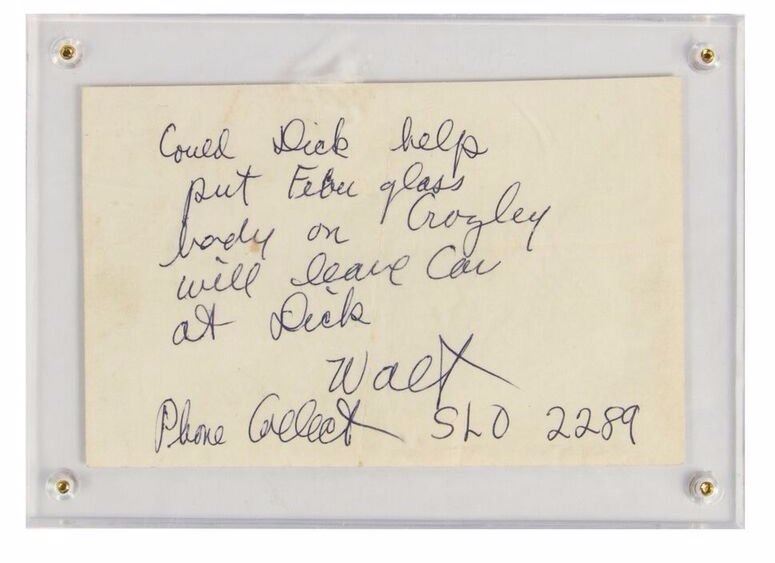 Could Dick help
put Fiber glass
body on Crozley
will leave Car
at Dick
Walt
Phone Collect SLO 2289